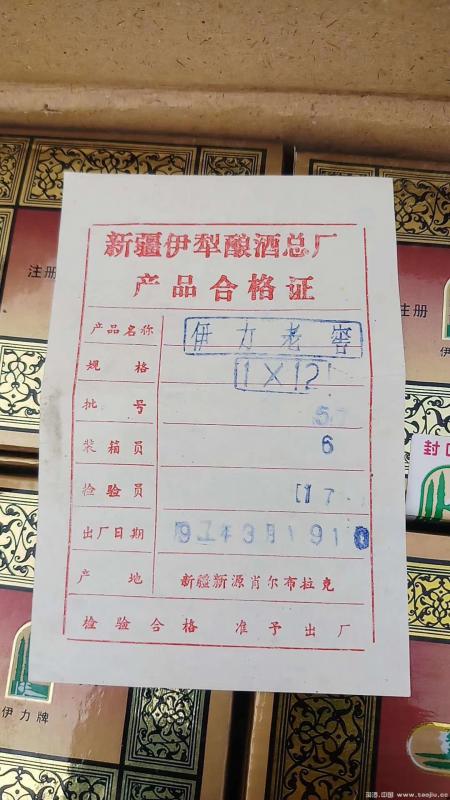 新疆伊犁酿酒总厂
产品合格证
产品名称 伊力老窖
规格 1×12
批号 5
装箱员 6
检验员 17
出厂日期
产地 新疆新源肖尔布拉克
检验合格 准予出厂
注册
注册
封口
伊力牌
伊力
www.taojiu.cc